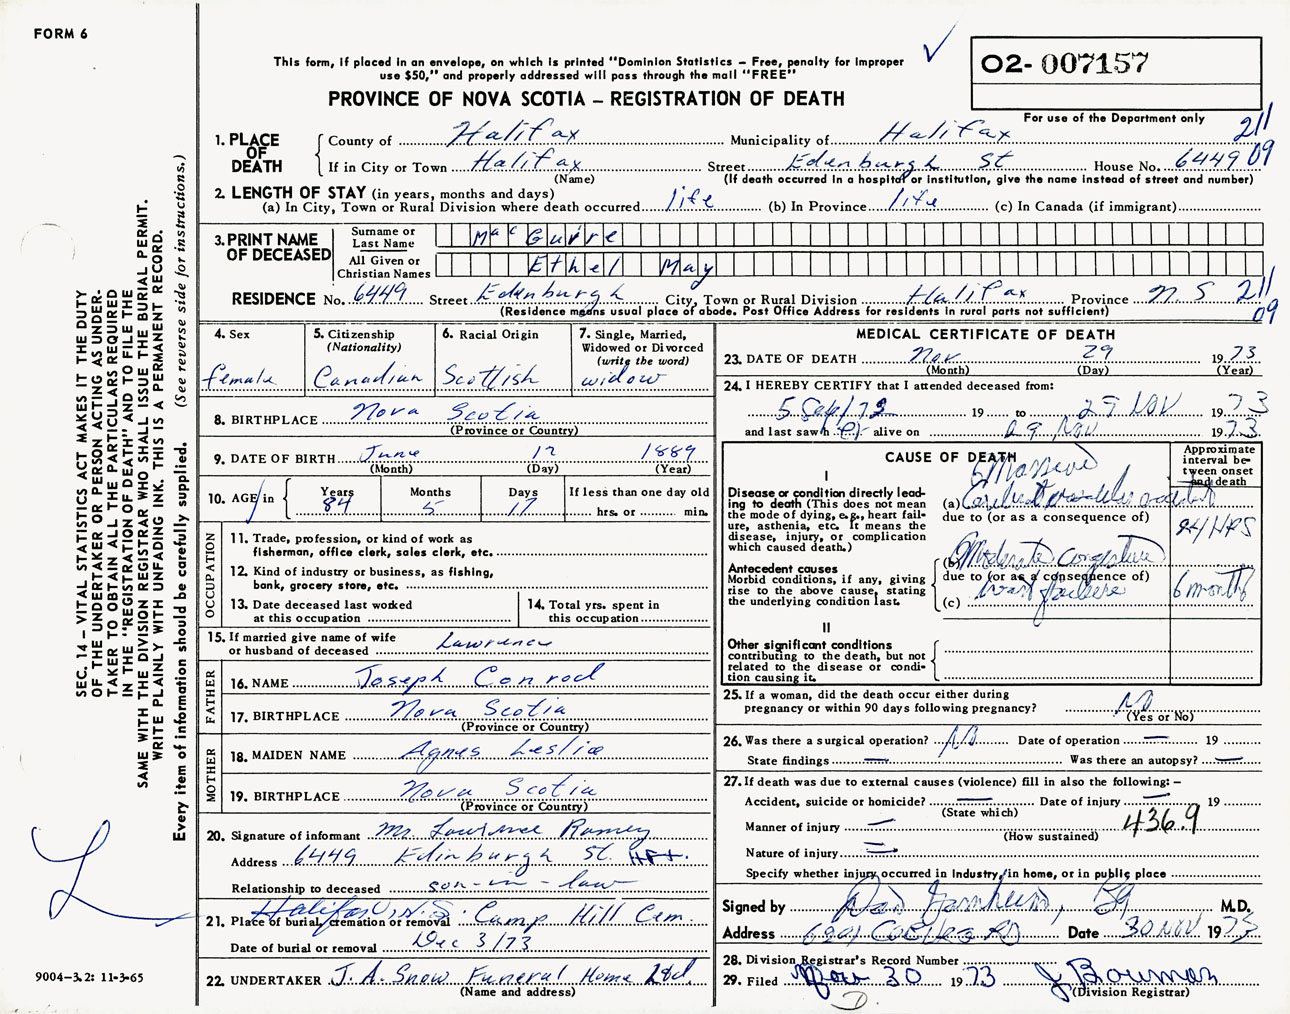 FORM 6
This form, if placed in an envelope, on which is printed "Dominion Statistics – Free, penalty for improper
use $50," and properly addressed will pass through the mail "FREE"
O2- 007157
PROVINCE OF NOVA SCOTIA – REGISTRATION OF DEATH
For use of the Department only
211
09
1. PLACE OF DEATH
County of Halifax Municipality of Halifax
If in City or Town Halifax Street Edenburgh St House No. 6449
(Name) (If death occurred in a hospital or institution, give the name instead of street and number)
2. LENGTH OF STAY (in years, months and days)
(a) In City, Town or Rural Division where death occurred life (b) In Province life (c) In Canada (if immigrant)
3. PRINT NAME OF DECEASED
Surname or Last Name MacGuire
All Given or Christian Names Ethel May
RESIDENCE No. 6449 Street Edenburgh City, Town or Rural Division Halifax Province N.S 211
09
(Residence means usual place of abode. Post Office Address for residents in rural parts not sufficient)
4. Sex
female
5. Citizenship
(Nationality)
Canadian
6. Racial Origin
Scottish
7. Single, Married,
Widowed or Divorced
(write the word)
widow
8. BIRTHPLACE Nova Scotia
(Province or Country)
9. DATE OF BIRTH June 12 1889
(Month) (Day) (Year)
10. AGE in
Years Months Days If less than one day old
84 5 17 hrs. or min.
OCCUPATION
11. Trade, profession, or kind of work as
fisherman, office clerk, sales clerk, etc.
12. Kind of industry or business, as fishing,
bank, grocery store, etc.
13. Date deceased last worked
at this occupation
14. Total yrs. spent in
this occupation
15. If married give name of wife
or husband of deceased Lawrence
FATHER
16. NAME Joseph Conrod
17. BIRTHPLACE Nova Scotia
(Province or Country)
MOTHER
18. MAIDEN NAME Agnes Leslie
19. BIRTHPLACE Nova Scotia
(Province or Country)
20. Signature of informant Mr. Lawrence Romey
Address 6449 Edinburgh St. Hfx.
Relationship to deceased son-in-law
21. Place of burial, cremation or removal Halifax N.S. Camp Hill Cem.
Date of burial or removal Dec 3/73
22. UNDERTAKER J. A. Snow Funeral Home Ltd.
(Name and address)
MEDICAL CERTIFICATE OF DEATH
23. DATE OF DEATH Nov 29 1973
(Month) (Day) (Year)
24. I HEREBY CERTIFY that I attended deceased from:
19 to 29 NOV 1973
and last saw her alive on 29 Nov 1973
CAUSE OF DEATH
Approximate
interval be-
tween onset
and death
I
Disease or condition directly lead-
ing to death (This does not mean
the mode of dying, e.g., heart fail-
ure, asthenia, etc. It means the
disease, injury, or complication
which caused death.)
(a) Massive
Cerebral vascular accident
due to (or as a consequence of)
24 HRS
Antecedent causes
Morbid conditions, if any, giving
rise to the above cause, stating
the underlying condition last.
(b) Moderate Congestive
due to (or as a consequence of)
heart failure 6 months
(c)
II
Other significant conditions
contributing to the death, but not
related to the disease or condi-
tion causing it.
25. If a woman, did the death occur either during
pregnancy or within 90 days following pregnancy? NO
(Yes or No)
26. Was there a surgical operation? NO Date of operation — 19
State findings — Was there an autopsy? —
27. If death was due to external causes (violence) fill in also the following: –
Accident, suicide or homicide? — Date of injury — 19
(State which)
Manner of injury — 436.9
(How sustained)
Nature of injury —
Specify whether injury occurred in industry, in home, or in public place
Signed by M.D.
Address Date 30 NOV 1973
28. Division Registrar's Record Number
29. Filed Nov 30 1973 J Bowman
(Division Registrar)
D.
SEC. 14 – VITAL STATISTICS ACT MAKES IT THE DUTY
OF THE UNDERTAKER OR PERSON ACTING AS UNDER-
TAKER TO OBTAIN ALL THE PARTICULARS REQUIRED
IN THE "REGISTRATION OF DEATH" AND TO FILE THE
SAME WITH THE DIVISION REGISTRAR WHO SHALL ISSUE THE BURIAL PERMIT.
WRITE PLAINLY WITH UNFADING INK. THIS IS A PERMANENT RECORD.
Every item of information should be carefully supplied. (See reverse side for instructions.)
9004–3.2: 11-3-65